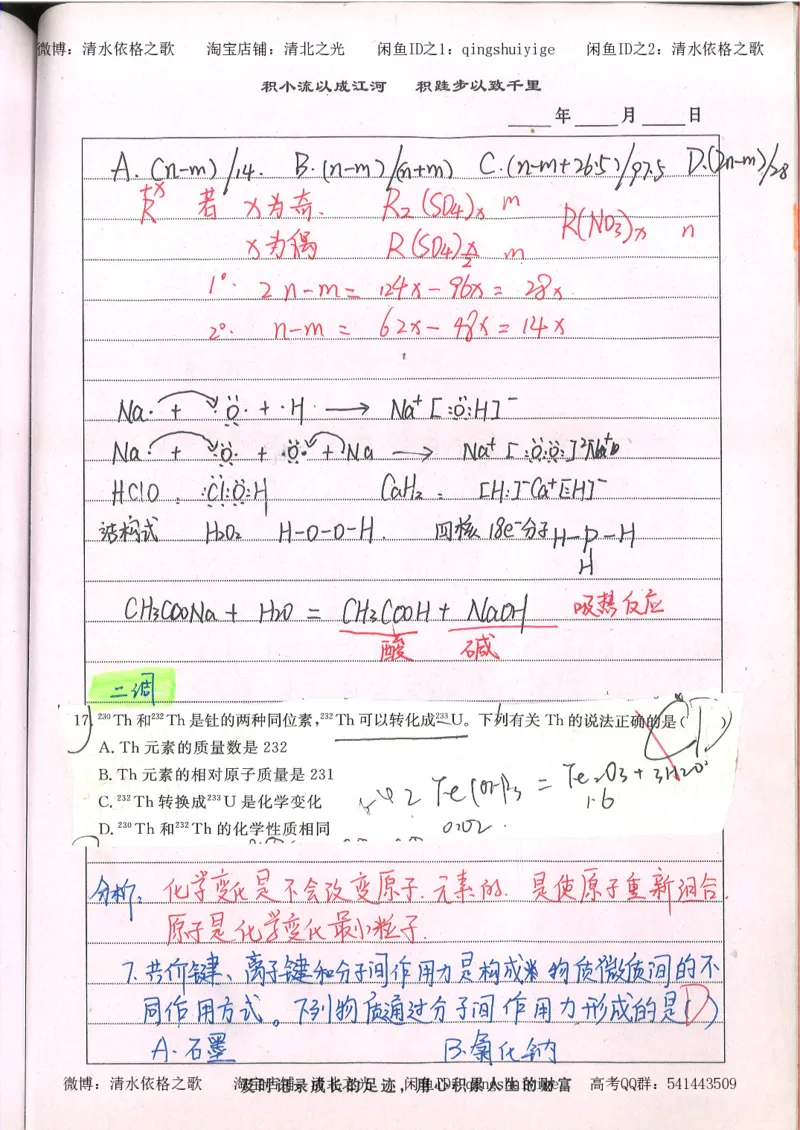 微博：清水依格之歌 淘宝店铺：清北之光 闲鱼ID之1：qingshuiyige 闲鱼ID之2：清水依格之歌
积小流以成江河 积跬步以致千里
年 月 日
A. (n-m)/14. B. (n-m)/(n+m) C. (n-m+26.5)/97.5 D. (2n-m)/28
R^{+x} 若 x为奇. R₂(SO₄)ₓ m R(NO₃)ₓ n
x为偶 R(SO₄)_{x/2} m
1°. 2n-m = 124x-96x = 28x.
2°. n-m = 62x-48x = 14x
Na· + ·Ö· + ·H ⟶ Na⁺[:Ö:H]⁻
Na· + ·Ö· + ·Ö· + Na ⟶ Na⁺[:Ö:Ö:]²⁻Na⁺
HClO : :Cl:O:H CaH₂ : [H:]⁻Ca²⁺[:H]⁻
结构式 H₂O₂ H-O-O-H. 四核 18e⁻分子 H-P-H
H
CH₃COONa + H₂O = CH₃COOH + NaOH 吸热反应
酸 碱
二调
17. ²³⁰Th 和²³²Th 是钍的两种同位素,²³²Th 可以转化成²³³U。下列有关 Th 的说法正确的是( D )
A. Th 元素的质量数是 232
B. Th 元素的相对原子质量是 231
C. ²³²Th 转换成²³³U 是化学变化
D. ²³⁰Th 和²³²Th 的化学性质相同
2Fe(OH)₃ = Fe₂O₃ + 3H₂O
0.02 1.6
分析: 化学变化是不会改变原子.元素的. 是使原子重新组合.
原子是化学变化最小粒子.
7.共价键、离子键和分子间作用力是构成物质微质间的不
同作用方式。下列物质通过分子间作用力形成的是(D)
A.石墨 B.氯化钠
微博：清水依格之歌 淘宝店铺：清北之光 闲鱼ID之1：qingshuiyige 高考QQ群：541443509
及时记录成长的足迹，用心积累人生的财富